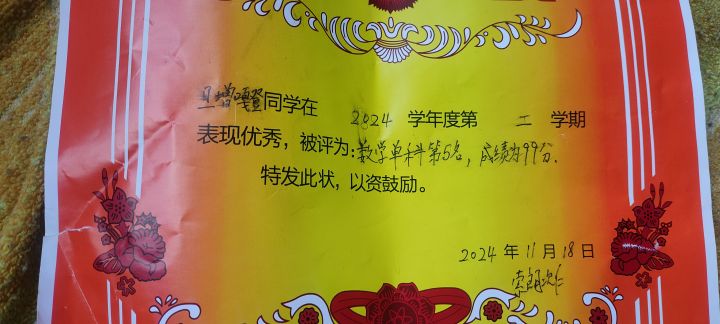 旦增嘎登同学在 2024 学年度第 二 学期
表现优秀，被评为：数学单科第5名，成绩为99分.
特发此状，以资鼓励。
2024 年 11 月 18 日
索朗次仁